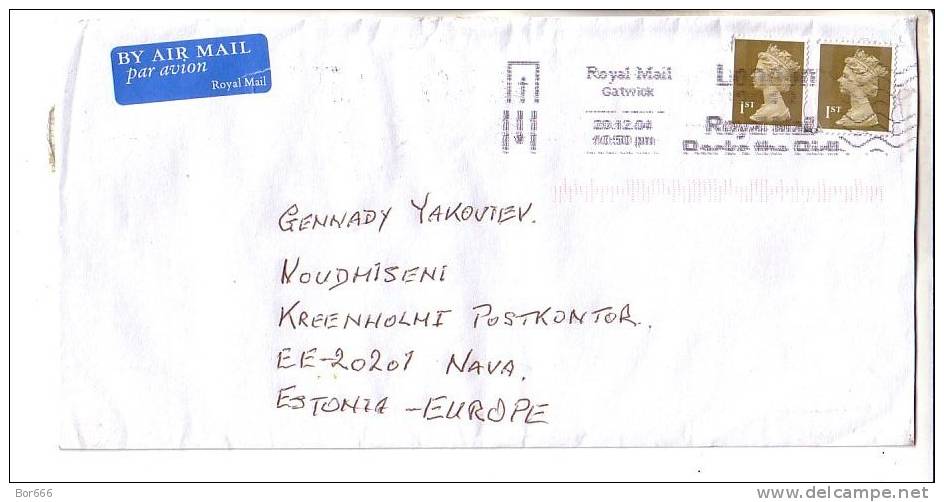 BY AIR MAIL
par avion
Royal Mail
Royal Mail
Gatwick
20.12.04
10:50 pm
London
Royal Mail
1ST
1ST
GENNADY YAKOVIEV.
NOUDMISENI
KREENHOLMI POSTKONTOR.
EE-20201 NAVA.
ESTONIA -EUROPE
Bor666
delcampe.net